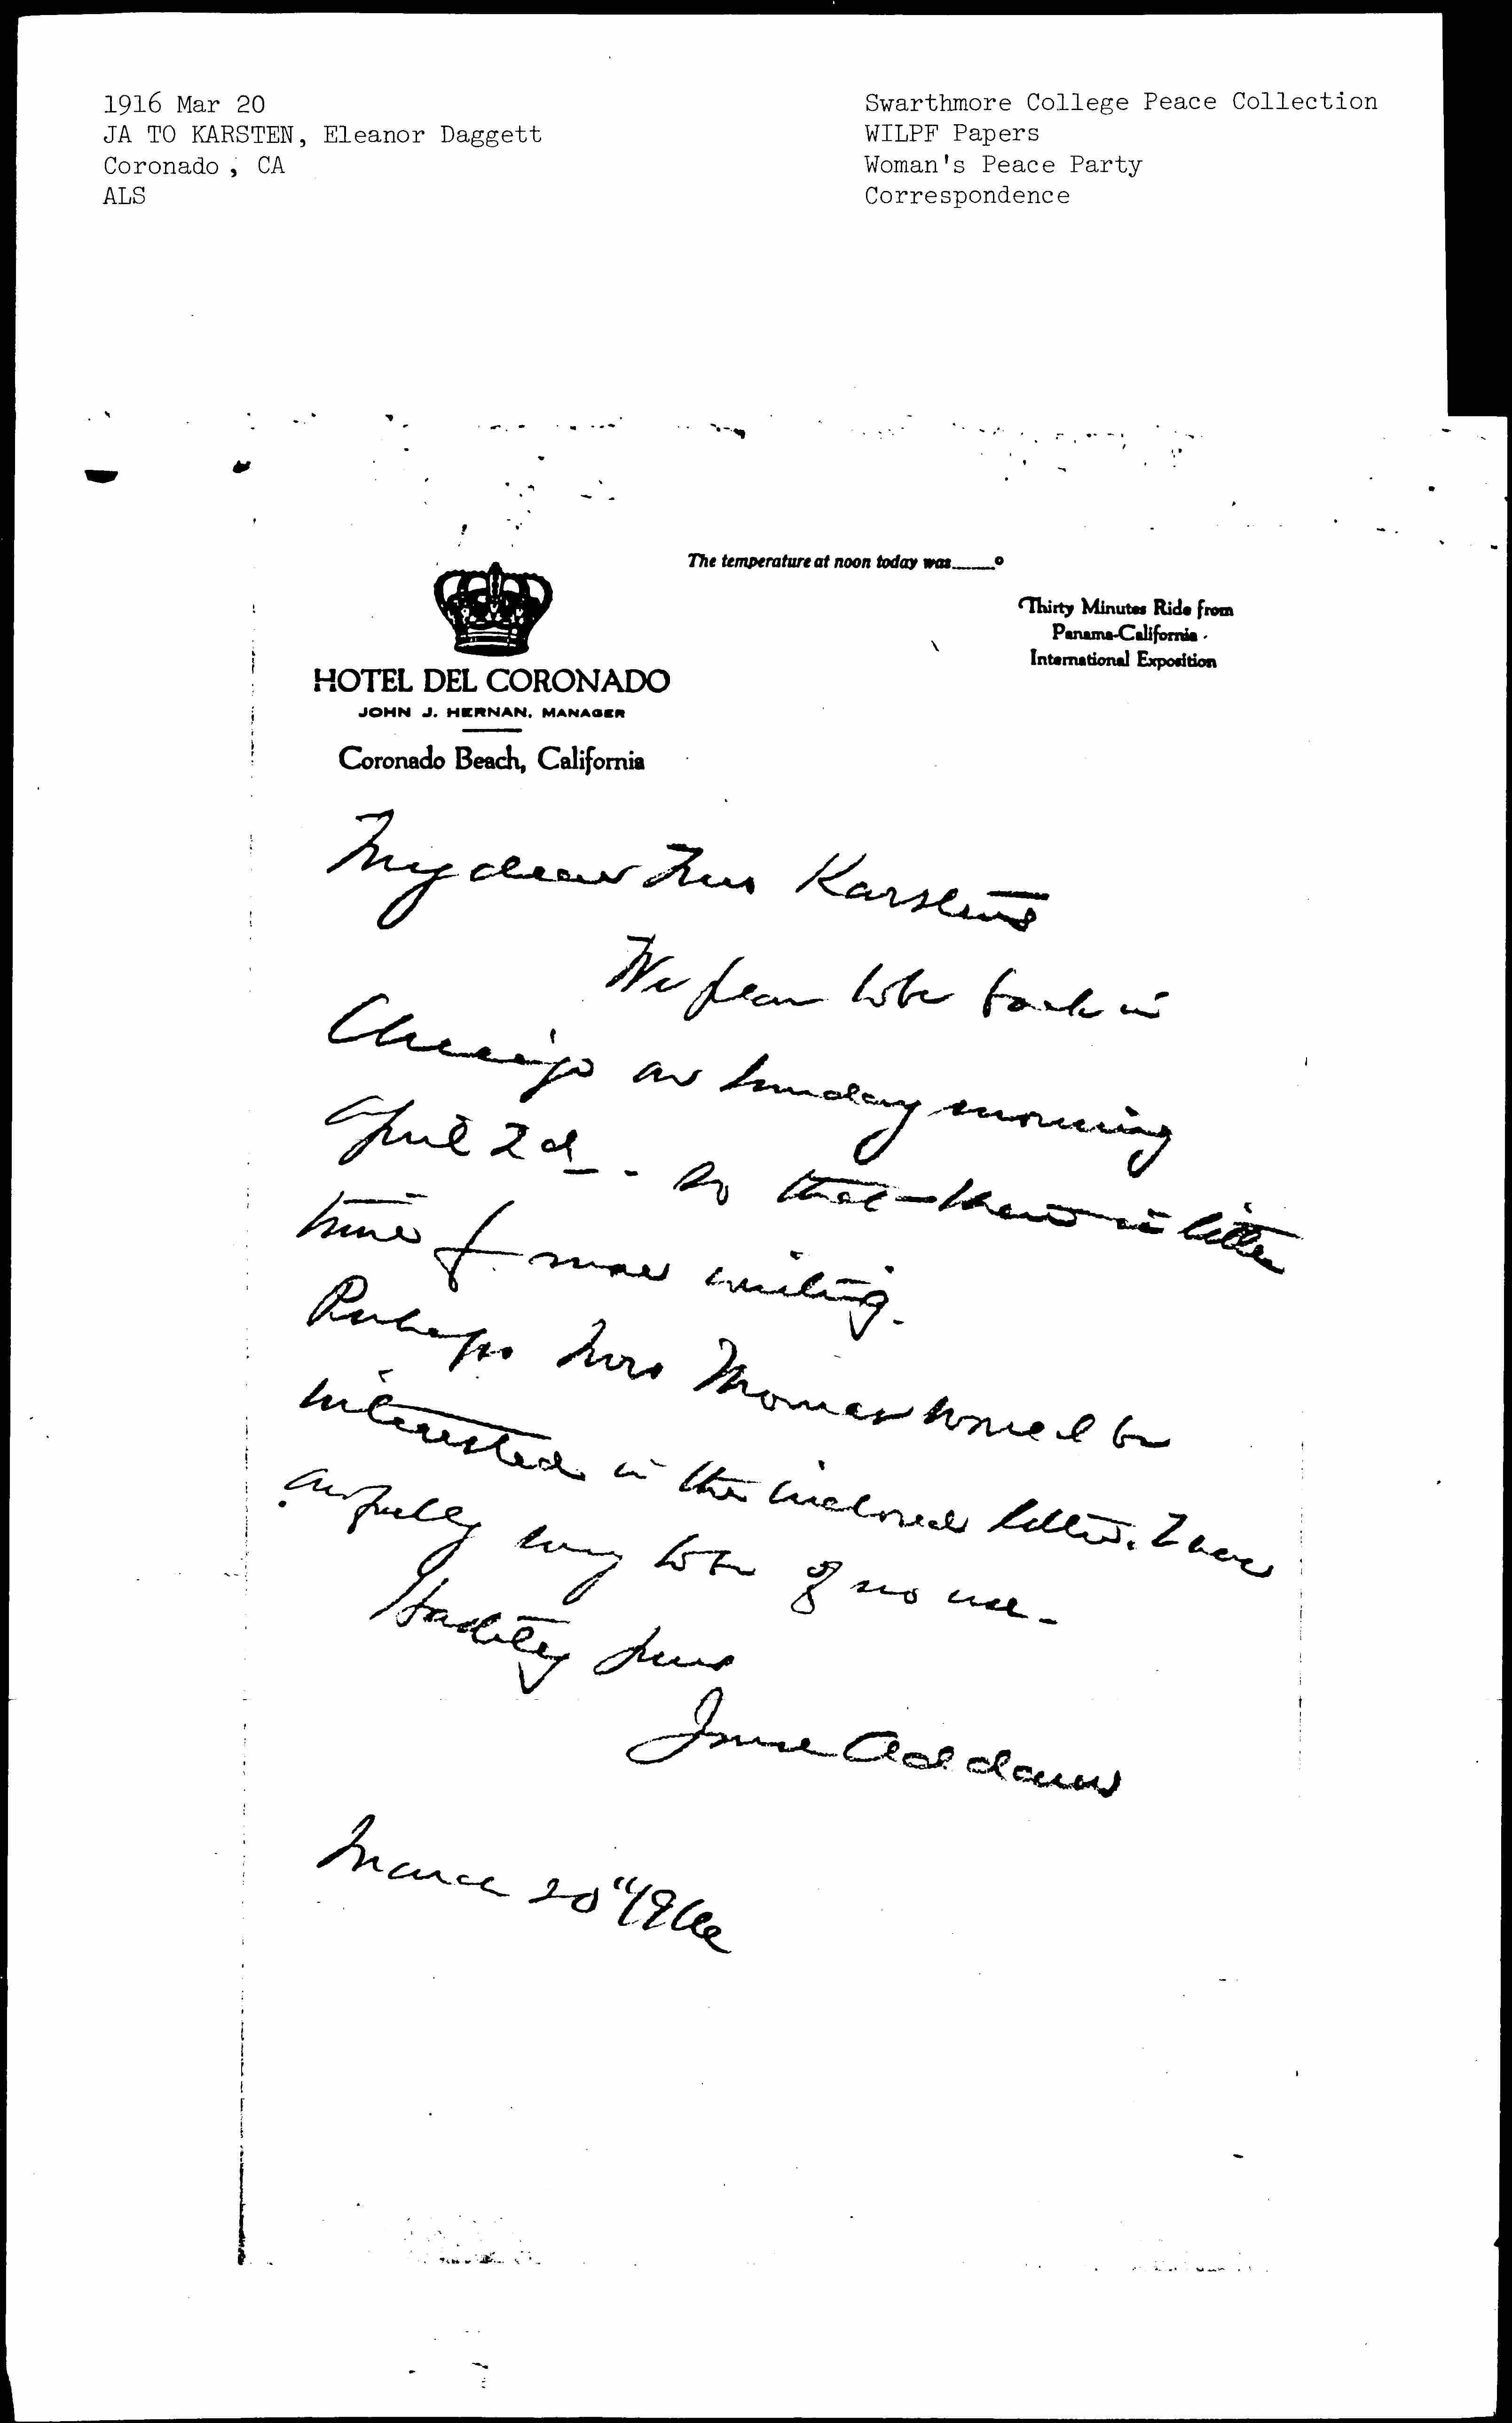 1916 Mar 20
JA TO KARSTEN, Eleanor Daggett
Coronado , CA
ALS
Swarthmore College Peace Collection
WILPF Papers
Woman's Peace Party
Correspondence
The temperature at noon today was........°
Thirty Minutes Ride from
Panama-California
International Exposition
HOTEL DEL CORONADO
JOHN J. HERNAN, MANAGER
Coronado Beach, California
My dear Mrs Karsten
We plan to be back in
Chicago on Sunday morning
April 2d - so that there is little
time for more writing.
Perhaps Mrs Thomas would be
interested in the inclosed letter. I am
awfully sorry to be of no use -
Hastily yours
Jane Addams
March 20" 1916